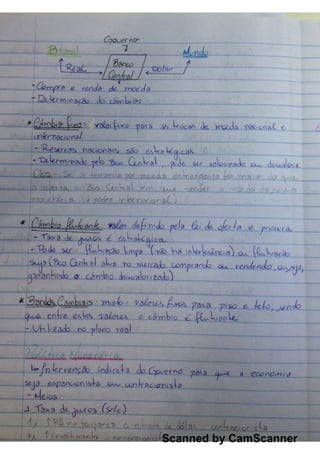 Governo
Brasil
Mundo
Real
Banco Central
Dólar
- Compra e venda de moeda
- Determinação do câmbio
* Câmbio fixo: valor fixo para as trocas de moeda nacional e
internacional
- Reservas nacionais são estratégicas
- Determinado pelo Bco Central, pode ser valorizado ou desvaloriz.
Obs: Se a demanda por moeda estrangeira for maior do que
a oferta, o Bco Central tem que vender a moeda da reserva
monetária (↓ poder internacional)
* Câmbio flutuante: valor definido pela lei de oferta e procura
- Taxa de juros é estratégica
- Pode ser: flutuação limpa (não há interferência) ou flutuação
suja (Bco Central atua no mercado comprando ou vendendo, ou seja,
garantindo o câmbio desvalorizado)
* Bandas Cambiais: misto: valores fixos para piso e teto, sendo
que entre estes valores o câmbio é flutuante
- Utilizado no plano real
Política Monetária
↳ Intervenção indireta do Governo para que a economia
seja expansionista ou contracionista
- Meios
1 Taxa de juros (selic)
↑ R$ na poupança e entrada de dólar contracionista
↑ investimento expansionista
Scanned by CamScanner